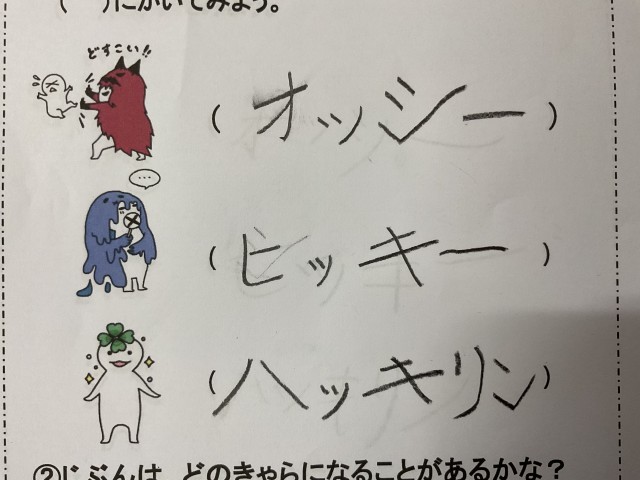 ( )にかいてみよう。
どすこい!!
( オッシー )
...
( ヒッキー )
( ハッキリン )
②じぶんは、どのきゃらになることがあるかな?